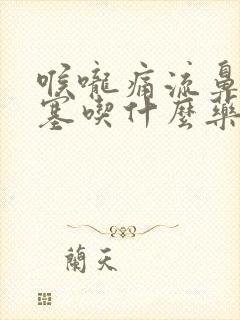 喉嚨痛流鼻
塞喫什麼藥
蘭天